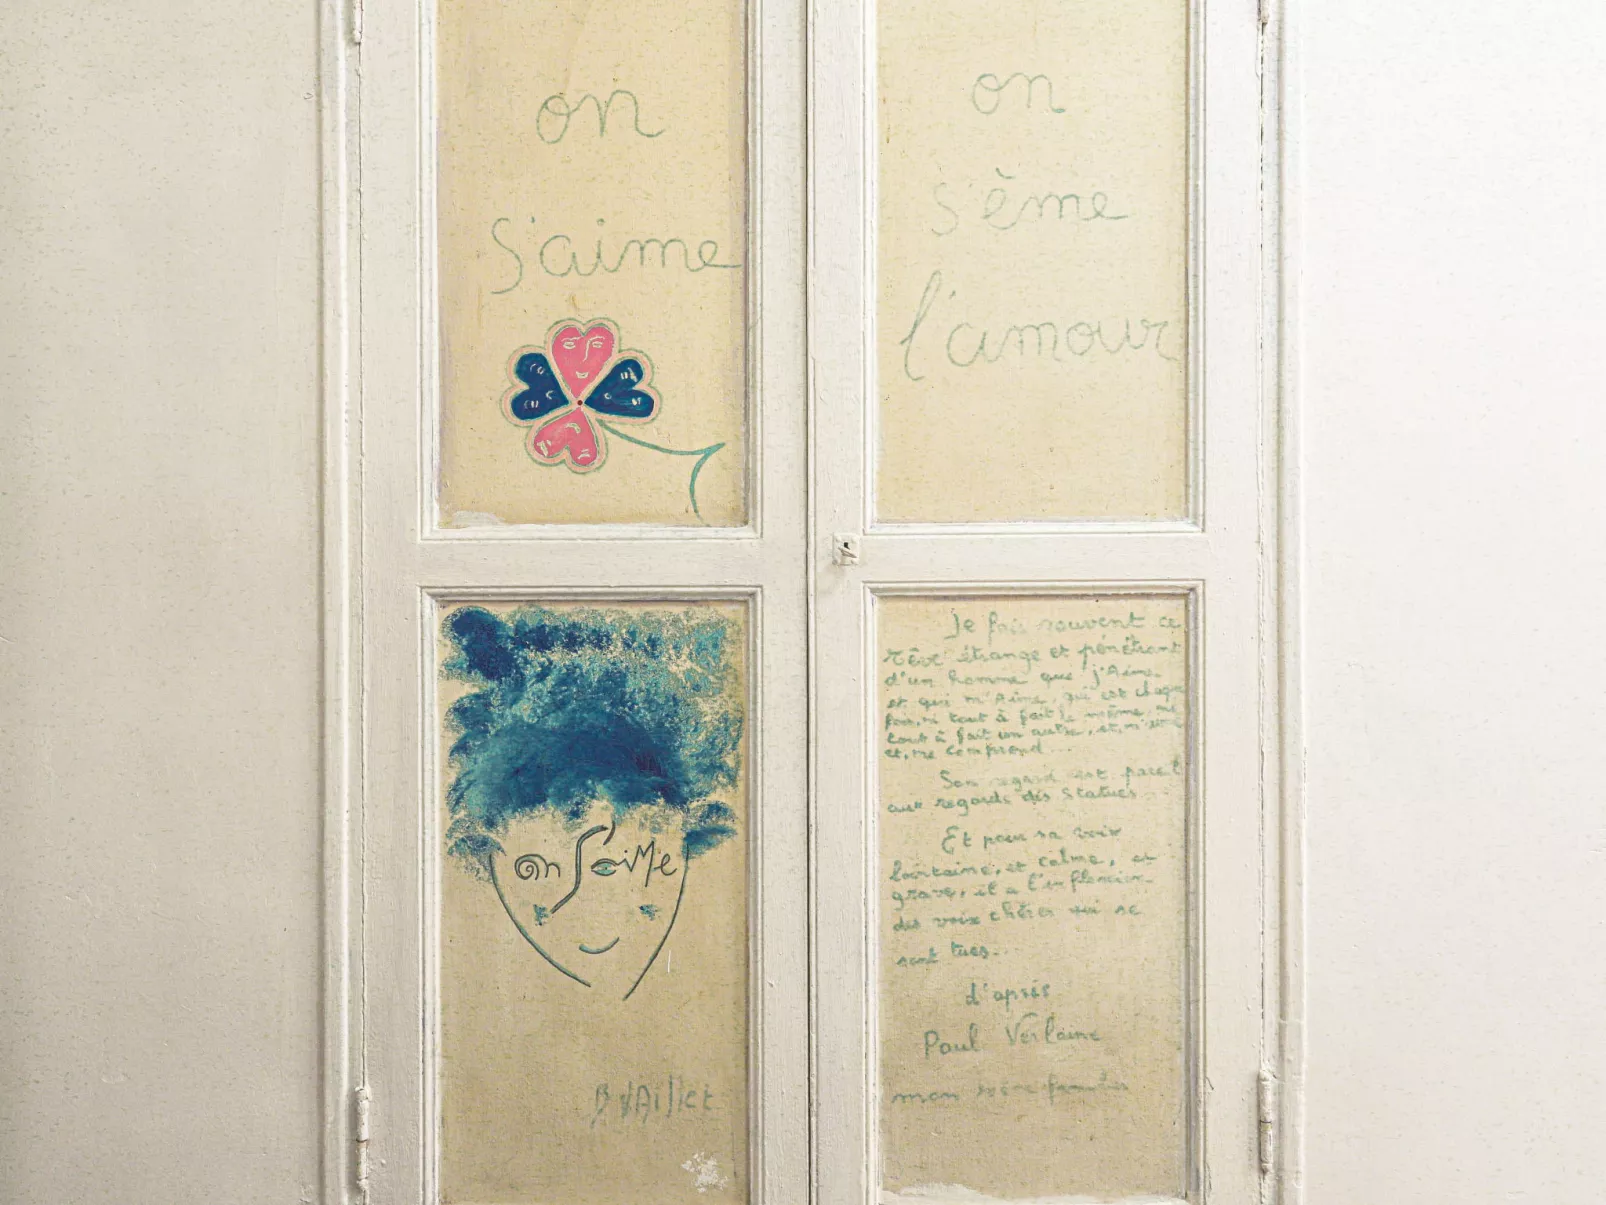 on
s'aime
on
s'ème
l'amour
on s'aiMe
B VAillet
Je fais souvent ce
rêve étrange et pénétrant
d'un homme que j'Aime
et qui m'Aime, qui est chaque
fois, ni tout à fait le même, ni
tout à fait un autre, et, m'aime
et, me comprend...
Son regard est pareil
aux regards des statues
Et pour sa voix
lointaine, et calme, et
grave, il a l'inflexion
des voix chères qui se
sont tues...
d'après
Paul Verlaine
mon rêve familier